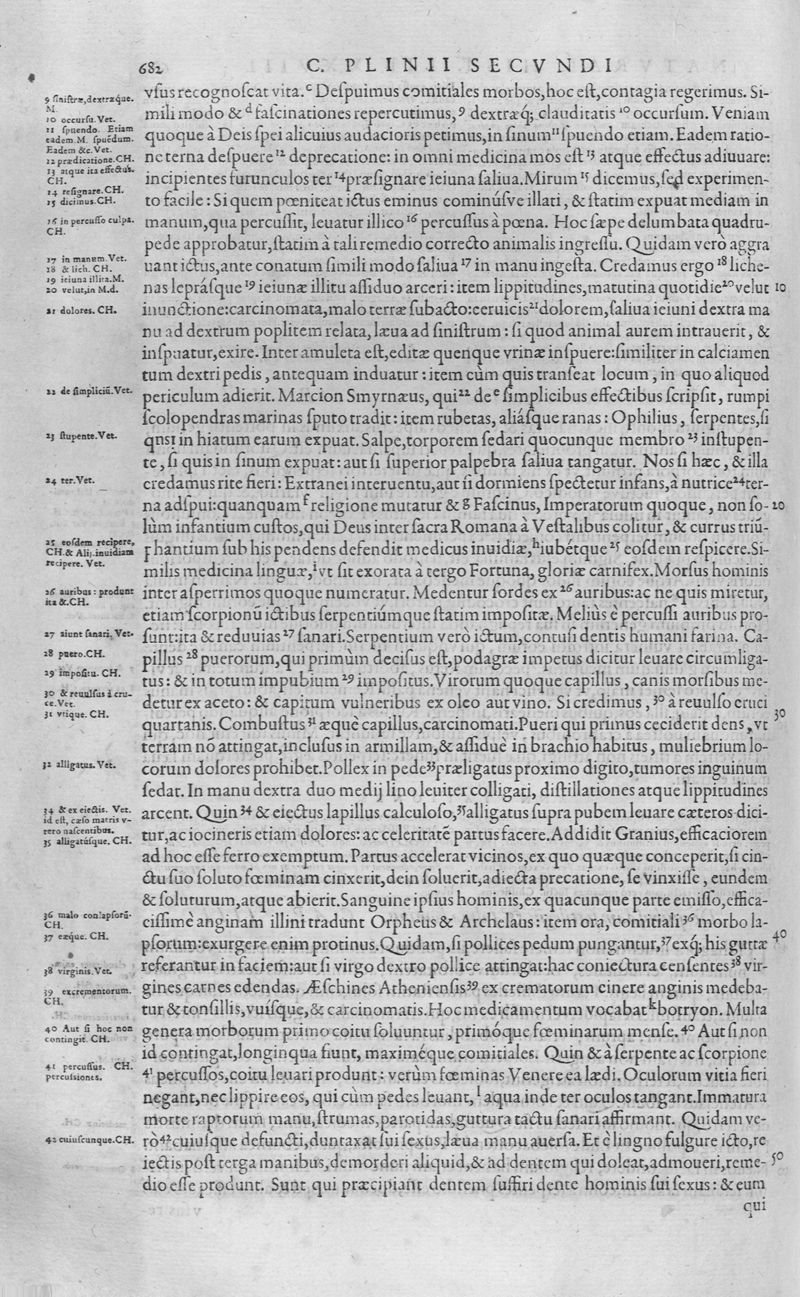 682 C. PLINII SECVNDI
vſus recognoſcat vita. c Deſpuimus comitiales morbos, hoc eſt, contagia regerimus. Si-
mili modo & d faſcinationes repercutimus, 9 dextræq; clauditatis 10 occurſum. Veniam
quoque à Deis ſpei alicuius audacioris petimus, in ſinum 11 ſpuendo etiam. Eadem ratio-
ne terna deſpuere 12 deprecatione: in omni medicina mos eſt 13 atque effectus adiuuare:
incipientes furunculos ter 14 præſignare ieiuna ſaliua. Mirum 15 dicemus, ſed experimen-
to facile: Si quem pœniteat ictus eminus cominúſve illati, & ſtatim expuat mediam in
manum, qua percuſſit, leuatur illico 16 percuſſus à pœna. Hoc ſæpe delumbata quadru-
pede approbatur, ſtatim à tali remedio correcto animalis ingreſſu. Quidam verò aggra
uant ictus, ante conatum ſimili modo ſaliua 17 in manu ingeſta. Credamus ergo 18 liche-
nas lepráſque 19 ieiunæ illitu aſſiduo arceri: item lippitudines, matutina quotidie 20 velut 10
inunctione: carcinomata, malo terræ ſubacto: ceruicis 21 dolorem, ſaliua ieiuni dextra ma
nu ad dextrum poplitem relata, læua ad ſiniſtrum: ſi quod animal aurem intrauerit, &
inſpuatur, exire. Inter amuleta eſt, editæ quenque vrinæ inſpuere: ſimiliter in calciamen
tum dextri pedis, antequam induatur: item cùm quis tranſeat locum, in quo aliquod
periculum adierit. Marcion Smyrnæus, qui 22 de e ſimplicibus effectibus ſcripſit, rumpi
ſcolopendras marinas ſputo tradit: item rubetas, aliáſque ranas: Ophilius, ſerpentes, ſi
quis in hiatum earum expuat. Salpe, torporem ſedari quocunque membro 23 inſtupen-
te, ſi quis in ſinum expuat: aut ſi ſuperior palpebra ſaliua tangatur. Nos ſi hæc, & illa
credamus rite fieri: Extranei interuentu, aut ſi dormiens ſpectetur infans, à nutrice 24 ter-
na adſpui: quanquam f religione mutatur & g Faſcinus, Imperatorum quoque, non ſo- 20
lùm infantium cuſtos, qui Deus inter ſacra Romana à Veſtalibus colitur, & currus triũ-
phantium ſub his pendens defendit medicus inuidiæ, h iubétque 25 eoſdem reſpicere. Si-
milis medicina linguæ, i vt ſit exorata à tergo Fortuna, gloriæ carnifex. Morſus hominis
inter aſperrimos quoque numeratur. Medentur ſordes ex 26 auribus: ac ne quis miretur,
etiam ſcorpionũ ictibus ſerpentiúmque ſtatim impoſitæ. Meliùs è percuſſi auribus pro-
ſunt: ita & reduuias 27 ſanari. Serpentium verò ictum, contuſi dentis humani farina. Ca-
pillus 28 puerorum, qui primùm deciſus eſt, podagræ impetus dicitur leuare circumliga-
tus: & in totum impubium 29 impoſitus. Virorum quoque capillus, canis morſibus me-
detur ex aceto: & capitum vulneribus ex oleo aut vino. Si credimus, 30 à reuulſo cruci
quartanis. Combuſtus 31 æquè capillus, carcinomati. Pueri qui primus ceciderit dens, vt 30
terram nõ attingat, incluſus in armillam, & aſſiduè in brachio habitus, muliebrium lo-
corum dolores prohibet. Pollex in pede 32 præligatus proximo digito, tumores inguinum
ſedat. In manu dextra duo medij lino leuiter colligati, diſtillationes atque lippitudines
arcent. Quin 34 & eiectus lapillus calculoſo, 35 alligatus ſupra pubem leuare cæteros dici-
tur, ac iocineris etiam dolores: ac celeritatẽ partus facere. Addidit Granius, efficaciorem
ad hoc eſſe ferro exemptum. Partus accelerat vicinos, ex quo quæque conceperit, ſi cin-
ctu ſuo ſoluto fœminam cinxerit, dein ſoluerit, adiecta precatione, ſe vinxiſſe, eundem
& ſoluturum, atque abierit. Sanguine ipſius hominis, ex quacunque parte emiſſo, effica-
ciſſimè anginam illini tradunt Orpheus & Archelaus: item ora, comitiali 36 morbo la-
pſorum: exurgere enim protinus. Quidam, ſi pollices pedum pungantur, 37 exq; his guttæ 40
referantur in faciem: aut ſi virgo dextro pollice attingat: hac coniectura cenſentes 38 vir-
gines carnes edendas. Æſchines Athenienſis 39 excrematorum cinere anginis medeba-
tur & tonſillis, vuiſque, & carcinomatis. Hoc medicamentum vocabat k botryon. Multa
genera morborum primo coitu ſoluuntur, primóque fœminarum menſe. 40 Aut ſi non
id contingat, longinqua fiunt, maximéque comitiales. Quin & à ſerpente ac ſcorpione
41 percuſſos, coitu leuari produnt: verùm fœminas Venere ea lædi. Oculorum vitia fieri
negant, nec lippire eos, qui cùm pedes leuant, l aqua inde ter oculos tangant. Immatura
morte raptorum manu, ſtrumas, parotidas, guttura tactu ſanari affirmant. Quidam ve-
rò 42 cuiuſque defuncti, duntaxat ſui ſexus, læua manu auerſa. Et è lingno fulgure icto, re
iectis poſt terga manibus, demorderi aliquid, & ad dentem qui doleat, admoueri, reme- 50
dio eſſe produnt. Sunt qui præcipiant dentem ſuffiri dente hominis ſui ſexus: & eum
qui
9 ſiniſtræ, dextræque.
M.
10 occurſu. Vet.
11 ſpuendo. Etiam
eadem. M. ſpuẽdum.
Eadem &c. Vet.
12 prædicatione. CH.
13 atque ita effectus.
CH.
14 reſignare. CH.
15 dicimus. CH.
16 in percuſſo culpa.
CH.
17 in manum. Vet.
18 & lich. CH.
19 ieiuna illita. M.
20 velut, in M. d.
21 dolores. CH.
22 de ſimpliciũ. Vet.
23 ſtupente. Vet.
24 ter. Vet.
25 eoſdem recipere,
CH. & Alij. inuidiam
recipere. Vet.
26 auribus: produnt
ita &. CH.
27 aiunt ſanari. Vet.
28 puero. CH.
29 impoſitu. CH.
30 & reuulſus à cru-
ce. Vet.
31 vtique. CH.
32 alligatus. Vet.
34 & ex eiectis. Vet.
id eſt, cæſo matris v-
tero naſcentibus.
35 alligatúſque. CH.
36 malo conlapſorũ.
CH.
37 eæque. CH.
38 virginis. Vet.
39 excrementorum.
CH.
40 Aut ſi hoc non
contingit. CH.
41 percuſſus. CH.
percuſsiones.
42 cuiuſcunque. CH.